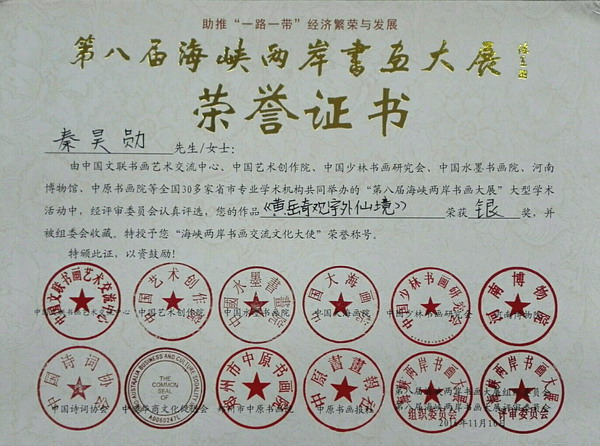 助推“一路一带”经济繁荣与发展
第八届海峡两岸書画大展
荣誉证书
秦昊勋 先生/女士:
由中国文联书画艺术交流中心、中国艺术创作院、中国少林书画研究会、中国水墨书画院、河南
博物馆、中原书画院等全国30多家省市专业学术机构共同举办的“第八届海峡两岸书画大展”大型学术
活动中，经评审委员会认真评选，您的作品《黄岳奇观宇外仙境》荣获 银 奖，并
被组委会收藏。特授予您“海峡两岸书画交流文化大使”荣誉称号。
特颁此证，以资鼓励!
中国文联书画艺术交流中心 中国艺术创作院 中國水墨書畫院 中国大海画院 中国少林书画研究会 河南博物院
中国文联书画艺术交流中心 中国艺术创作院 中国水墨书画院 中国大海画院 中国少林书画研究会 河南博物院
中国诗词协会 THE COMMON SEAL OF 郑州市中原书画院 中原書畫報社 海峡两岸书画大展 组织委员会 海峡两岸书画大展 评审委员会
第八届海峡两岸书画大展组织委员会
中国诗词协会 郑州市中原书画院 中原书画报社 第八届海峡两岸书画大展评审委员会
11月16日